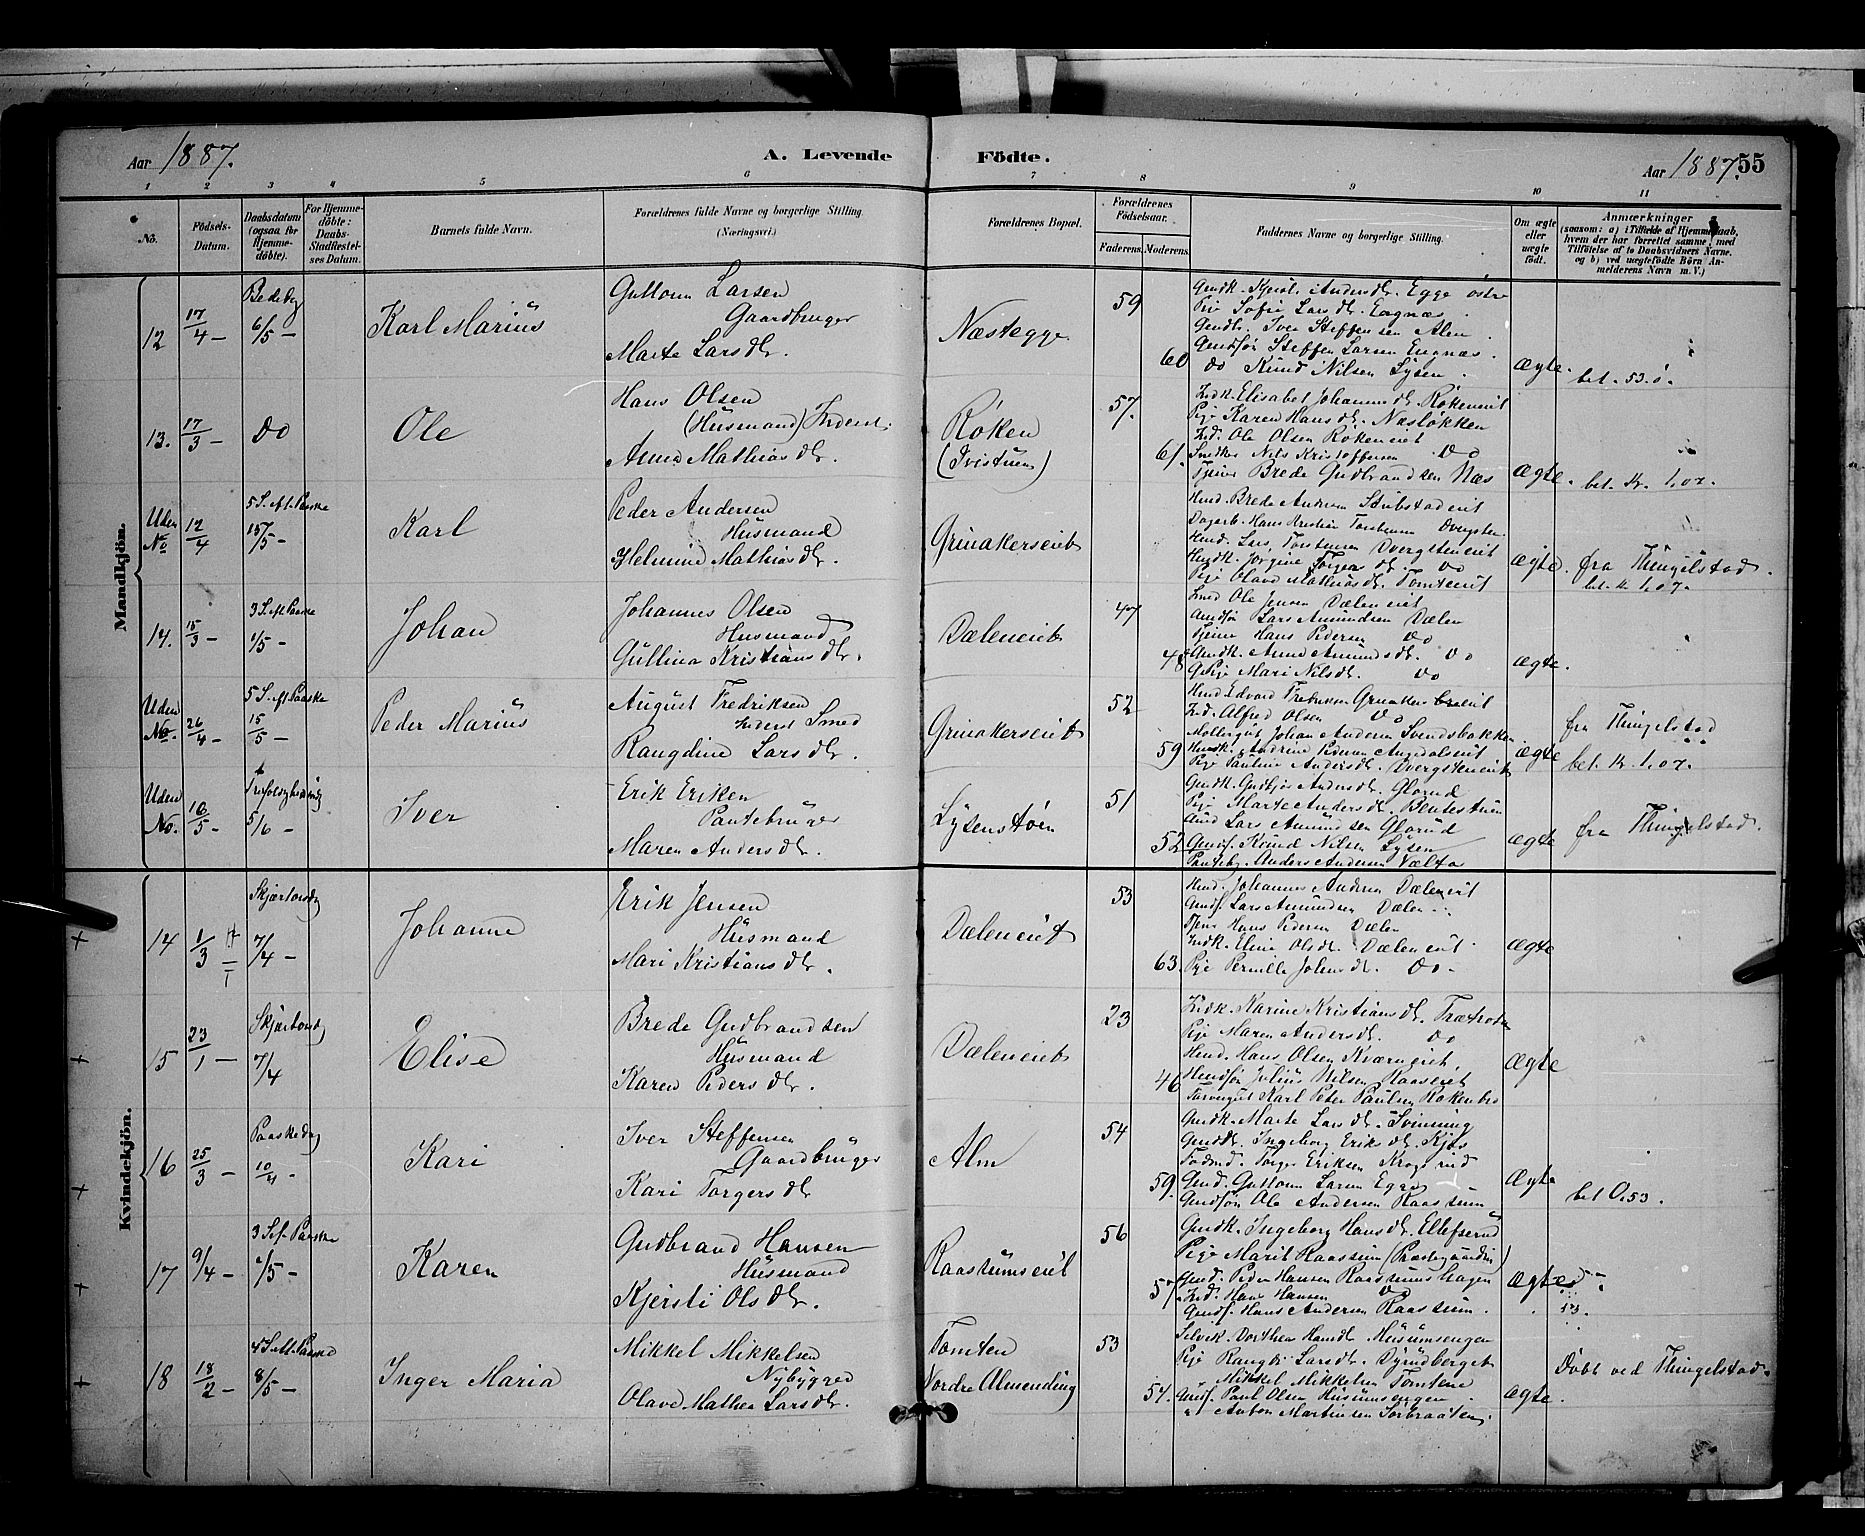 Aar 1887.
A. Levende Födte.
Aar 1887. 55
1 2 3 4 5 6 7 8 9 10 11
No.
Födsels-Datum.
Daabsdatum (ogsaa for Hjemme-döbte).
For Hjemme-döbte: Daabs-Stadfæstel-ses Datum.
Barnets fulde Navn.
Forældrenes fulde Navne og borgerlige Stilling. (Næringsvei.)
Forældrenes Bopæl.
Forældrenes Födselsaar.
Faderens. Moderens.
Faddernes Navne og borgerlige Stilling.
Om ægte eller uægte födt.
Anmærkninger (saasom: a) i Tilfælde af Hjemmedaab, hvem der har forrettet samme, med Tilföielse af to Daabsvidners Navne. og b) ved uægtefödte Börn An-melderens Navn m. V.)
Mandkjön.
12 17/4 - Bededag 6/5 - Karl Marius
Guttorm Larsen Gaardbruger
Marte Larsdtr.
Næstegge
59
60
Gmdk. Kjersti Andersdt. Egge östre
Pige Sofie Larsdt. Engnæs
Gmdk. Iver Steffensen Alm
Gmdsön Steffen Larsen Engnæs.
do Knud Nilsen Lysen
Ægte. bet. 53 ö.
13. 17/3 - do Ole
Hans Olsen (Husmand) Inderst
Anne Mathiasdtr.
Röken
57.
61.
Indk. Elisabet Johannesdt. Rökeneiet
Pige Karen Hansdt. Næslökken
Ind. Ole Olsen Rökeneiet
Smdk. Nils Kristoffersen do
Tjener Brede Gudbrandsen Næs
Ægte. bet. Kr. 1.07.
Uden No 12/4 5 S. Aft. Paaske 15/5 - Karl
Peder Andersen Husmand
Helmine Mathiasdtr.
Grinakerseiet
Hmd. Brede Andersen Stubstadeiet
Hmd. Lars Torstensen Dvergsteneiet
Hmdk. Jörgine Torgersdt. do
Pige Olave Mathiasdt. Tomteeiet
Ægte. fra Thingelstad.
bet. kr. 1.07.
14. 15/3 - 3 S. Aft. Paaske 1/5 - Johan
Johannes Olsen Husmand
Gullina Kristiansdtr.
Dæleneiet
47
48
Ind Ole Jensen Dæleneiet
Gmdsön Lars Amundsen Dælen
Tjener Hans Pedersen do
Gmdk. Anne Amundsdt. do
Pige Mari Nilsdt. do
Ægte.
Uden No. 26/4 - 5 S. Aft. Paaske 15/5 - Peder Marius
August Fredriksen Inderst Smed
Rangdine Larsdtr.
Grinakerseiet
52
59
Hmd. Edvard Fredriksen Grinakerseiet
Ind. Alfred Olsen do
Möllergut Johan Andersen Svendsbakken
Pige Pauline Andersdt. Dvergsteneiet
Ægte fra Thingelstad
bet. kr. 1.07.
Uden No. 10/5 - 5/6 - Iver
Erik Eriksen Pantebruger
Maren Andersdtr.
Lysenstöen
51
52
Pige Marte Andersdt. Bentestuen
Lars Amundsen Glorud
Gmds. Knud Nilsen Lysen
Panteb. Anders Andersen Velta
Ægte fra Thingelstad.
Kvindekjön.
14 1/3 Skjærtorsdag 7/4 - Johanne
Erik Jensen Husmand
Mari Kristiansdtr.
Dæleneiet
53
63.
Hmd. Johannes Andersen Dæleneiet
Gmds. Lars Amundsen Dælen
Tjener Hans Pedersen Dælen
Indk. Eline Olsdt. Dæleneiet
Pige Pernille Johnsdt. do
Ægte
15 23/1 - Skjærtorsdag 7/4 Elise
Brede Gudbrandsen Husmand
Karen Pedersdtr.
Dæleneiet
23
46
Indk. Karine Kristiansdt.
Pige Maren Andersdt. do
Hmd. Hans Olsen Kværneiet.
Hmdsön Julius Nilsen Raaseiet
Karl Peter Paulsen
Ægte
16 25/3 - Paaskedag 10/4 - Kari
Iver Steffensen Gaardbruger
Kari Torgersdtr
Alm
54
59.
Gmdk. Marte Larsdt. Svinning
Gmddt. Ingeborg Eriksdt. Kjos
Födrmd. Torger Eriksen Krogsrud
Gmd. Guttorm Larsen Egge
Gmdsön Ole Andersen Raassum
Ægte bet 0.53.
17 9/4 - 3 S. ef. Paaske 1/5 - Karen
Gudbrand Hansen Husmand
Kjersti Olsdtr.
Raassumseiet
56
57
Gmdk. Ingeborg Hansdtr. Ellefsrud
Pige Marit Raassum (Præstegaarden)
Gmd. Peder Hansen Raassumshagen
Ind. Hans Hansen do
Gmds. Hans Andersen Raassum.
Ægte
18 18/2 - 4 S. Aft. Paaske 8/5 - Inger Maria
Mikkel Mikkelsen Nybygger
Olave Mathea Larsdtr.
Tomten
Nordre Almending
53
54.
Selvk. Dorthea Hansdt. Husumsengen
Pige Rangdi Larsdt. Dynudberget
Mikkel Mikkelsen Tomtene
Gmds. Paul Olsen Husumsengen
Anton Martinsen Sorbraaten.
Ægte. Döbt ved Thingelstad.